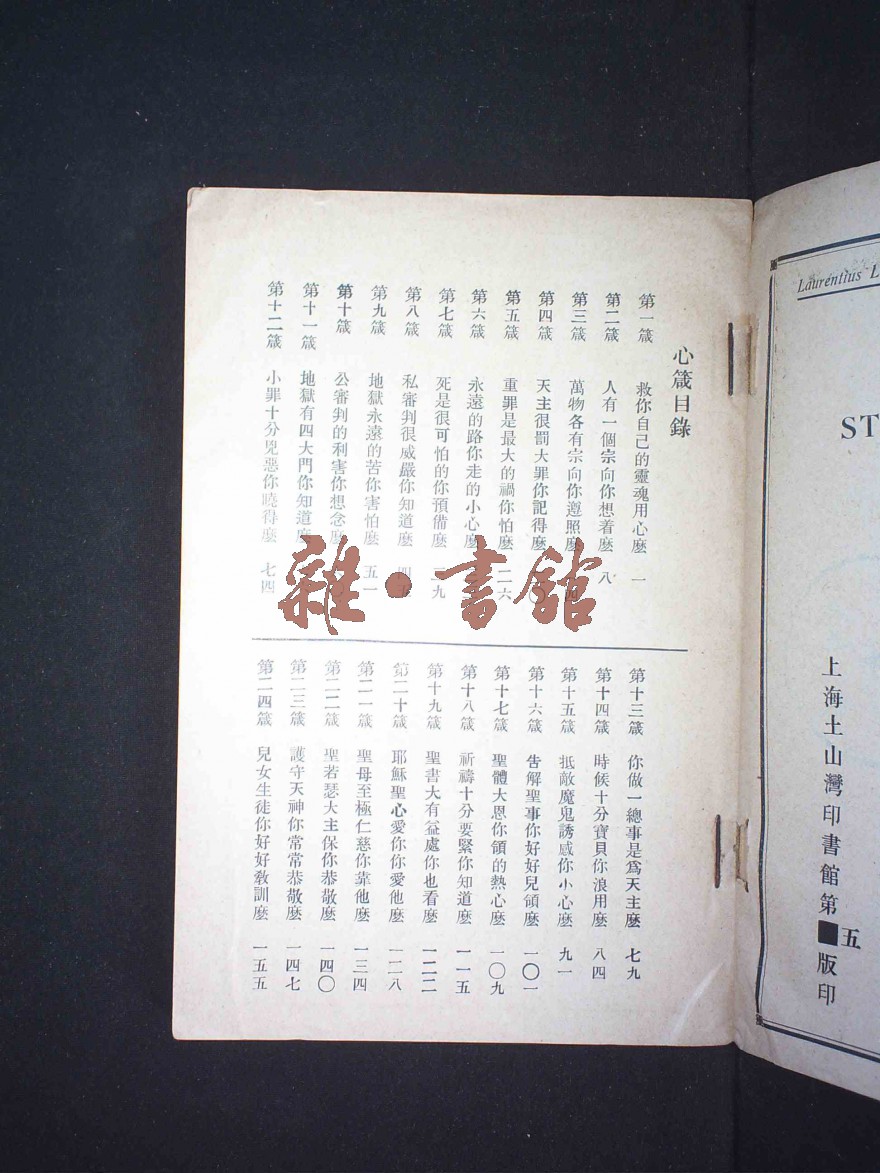 心箴目錄
第一箴 救你自己的靈魂用心麽 一
第二箴 人有一個宗向你想着麽 八
第三箴 萬物各有宗向你遵照麽
第四箴 天主很罰大罪你記得麽
第五箴 重罪是最大的禍你怕麽 二六
第六箴 永遠的路你走的小心麽
第七箴 死是很可怕的你預備麽 三九
第八箴 私審判很威嚴你知道麽 四五
第九箴 地獄永遠的苦你害怕麽 五一
第十箴 公審判的利害你想念麽
第十一箴 地獄有四大門你知道麽
第十二箴 小罪十分兇惡你曉得麽 七四
第十三箴 你做一總事是爲天主麽 七九
第十四箴 時候十分寶貝你浪用麽 八四
第十五箴 抵敵魔鬼誘感你小心麽 九一
第十六箴 告解聖事你好好兒領麽 一〇一
第十七箴 聖體大恩你領的熱心麽 一〇九
第十八箴 祈禱十分要緊你知道麽 一一五
第十九箴 聖書大有益處你也看麽 一二二
第二十箴 耶穌聖心愛你你愛他麽 一二八
第二一箴 聖母至極仁慈你靠他麽 一三四
第二二箴 聖若瑟大主保你恭敬麽 一四〇
第二三箴 護守天神你常常恭敬麽 一四七
第二四箴 兒女生徒你好好敎訓麽 一五五
雜·書館
Laurentius L
ST
上海土山灣印書館第五版印